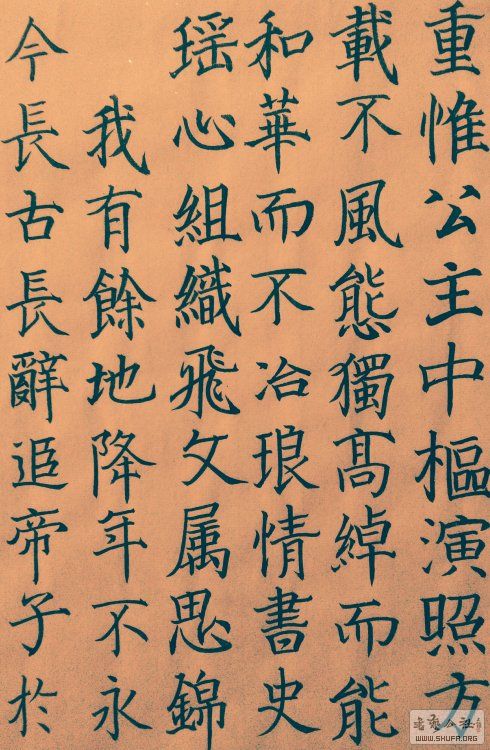 重惟公主中樞演照方
載不風態獨髙綽而能
和華而不冶琅情書史
瑶心組織飛文属思錦
我有餘地降年不永
今長古長辭追帝子於
WWW.SHUFA.ORG